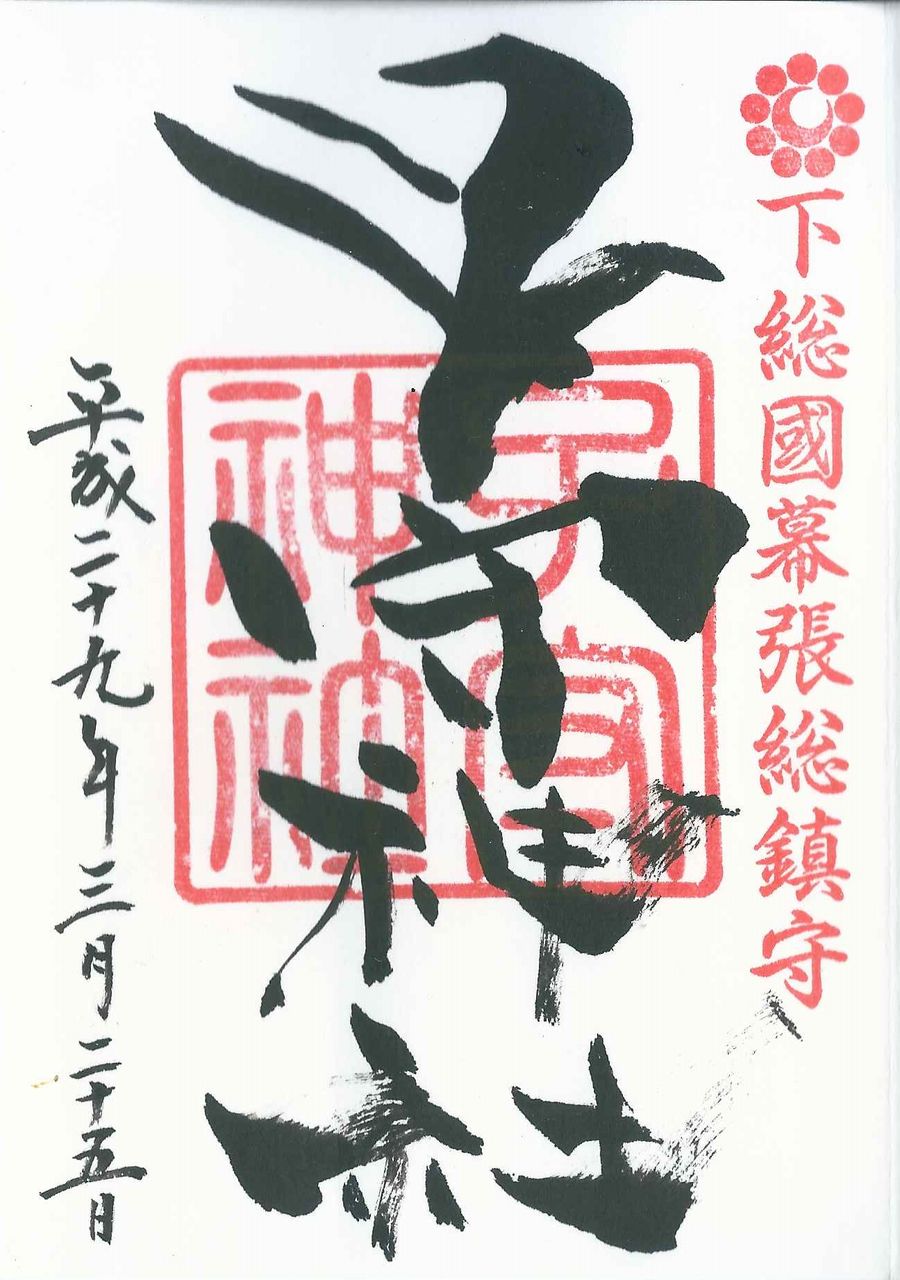 下総國幕張総鎮守
子守神社
子守神社
平成二十九年三月二十五日